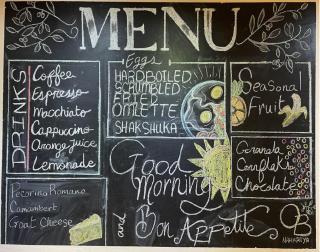 MENU
DRINKS
Coffee
Espresso
Macchiato
Cappuccino
Orange juice
Lemonade
Eggs
HARDBOILED
SCRUMBLED
FRIED
OMLETTE
SHAKSHUKA
Seasonal
Fruit
Pecorino Romano
Camambert
Goat Cheese
Good
Morning
and
Bon Appetite
Granola
Cornflakes
Chocolate
OB
NAHARIYA